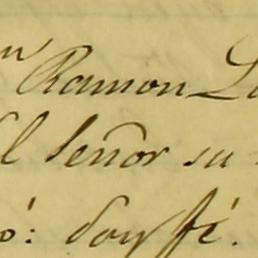 n Ramon L
l señor su
ó: doy fé.